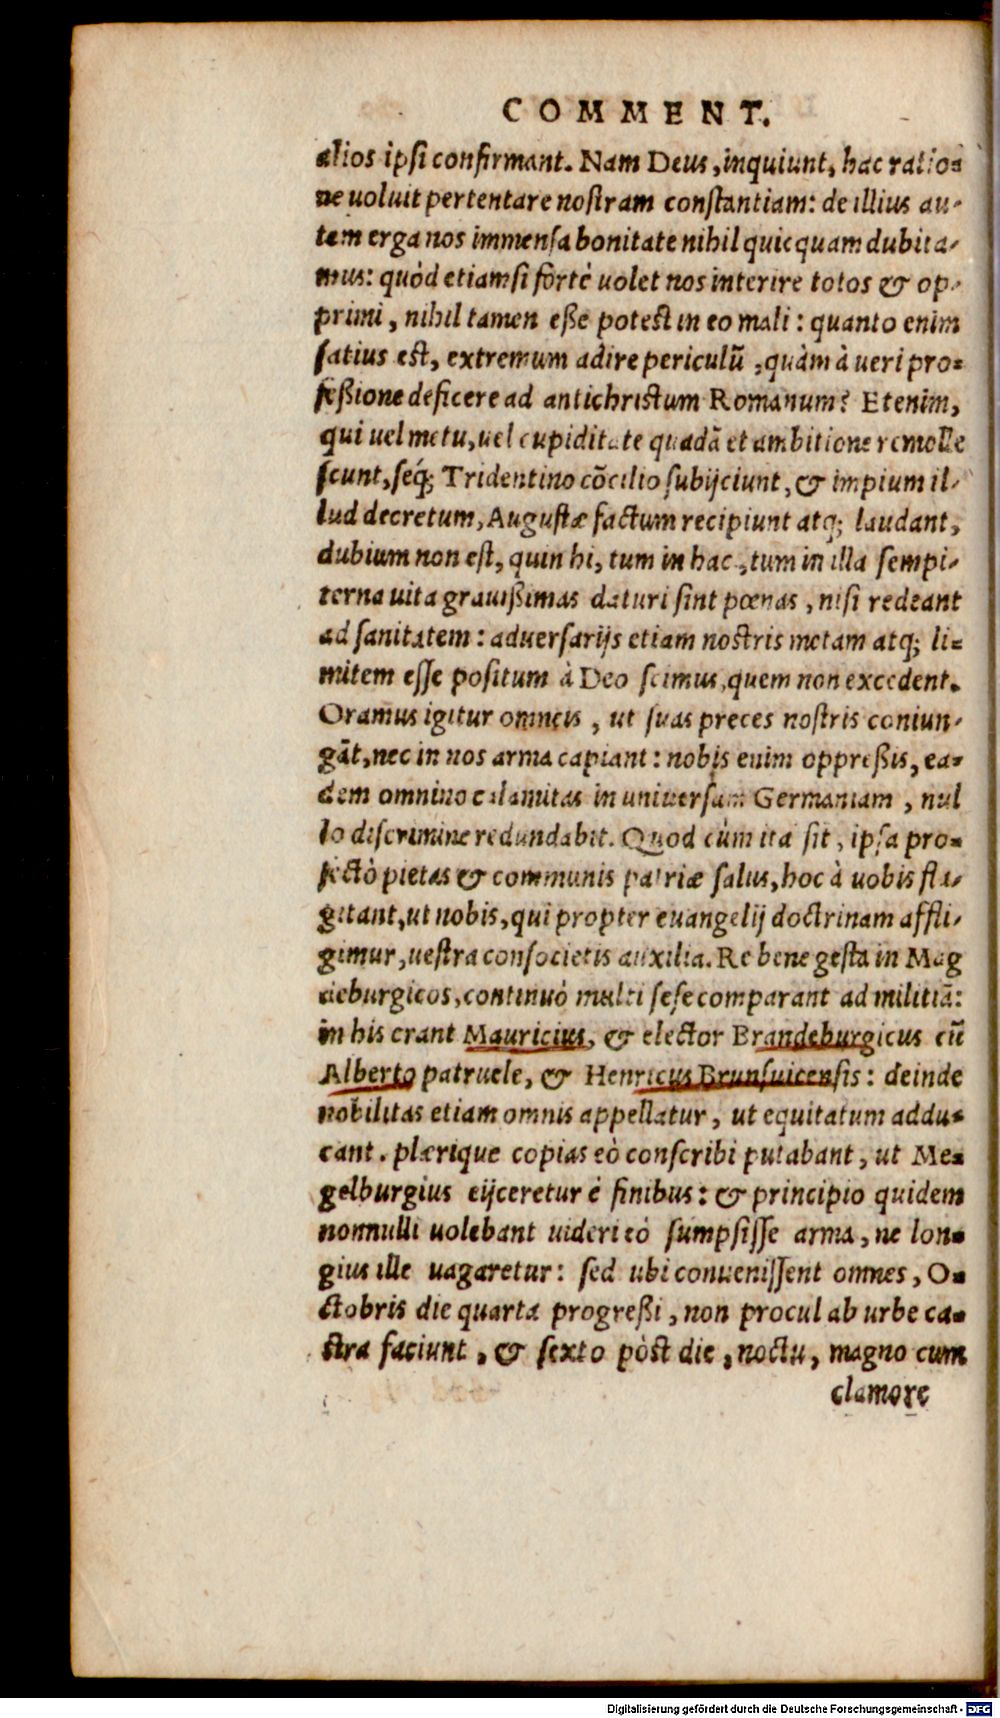 COMMENT.
alios ipsi confirmant. Nam Deus, inquiunt, hac ratio-
ne uoluit pertentare nostram constantiam: de illius au-
tem erga nos immensa bonitate nihil quicquam dubita-
mus: quòd etiamsi fortè uolet nos interire totos & op-
primi, nihil tamen eße potest in eo mali: quanto enim
satius est, extremum adire periculū, quàm à ueri pro-
feßione deficere ad antichristum Romanum? Etenim,
qui uel metu, uel cupiditate quadā et ambitione remolle
scunt, seq́; Tridentino cōcilio subijciunt, & impium il-
lud decretum, Augustæ factum recipiunt atq; laudant,
dubium non est, quin hi, tum in hac, tum in illa sempi-
terna uita grauißimas daturi sint pœnas, nisi redeant
ad sanitatem: aduersarijs etiam nostris metam atq; li-
mitem esse positum à Deo scimus, quem non excedent.
Oramus igitur omneis, ut suas preces nostris coniun-
gāt, nec in nos arma capiant: nobis enim oppreßis, ea-
dem omnino calamitas in uniuersam Germaniam, nul
lo discrimine redundabit. Quod cùm ita sit, ipsa pro-
fectò pietas & communis patriæ salus, hoc à uobis fla-
gitant, ut nobis, qui propter euangelij doctrinam affli-
gimur, uestra consocietis auxilia. Re bene gesta in Mag
deburgicos, continuò multi sese comparant ad militiā:
in his erant Mauricius, & elector Brandeburgicus cū
Alberto patruele, & Henricus Brunsuicensis: deinde
nobilitas etiam omnis appellatur, ut equitatum addu-
cant. plærique copias eò conscribi putabant, ut Me-
gelburgius eijceretur è finibus: & principio quidem
nonnulli uolebant uideri eò sumpsisse arma, ne lon-
gius ille uagaretur: sed ubi conuenissent omnes, O-
ctobris die quarta progreßi, non procul ab urbe ca-
stra faciunt, & sexto pòst die, noctu, magno cum
clamore
Digitalisierung gefördert durch die Deutsche Forschungsgemeinschaft - DFG